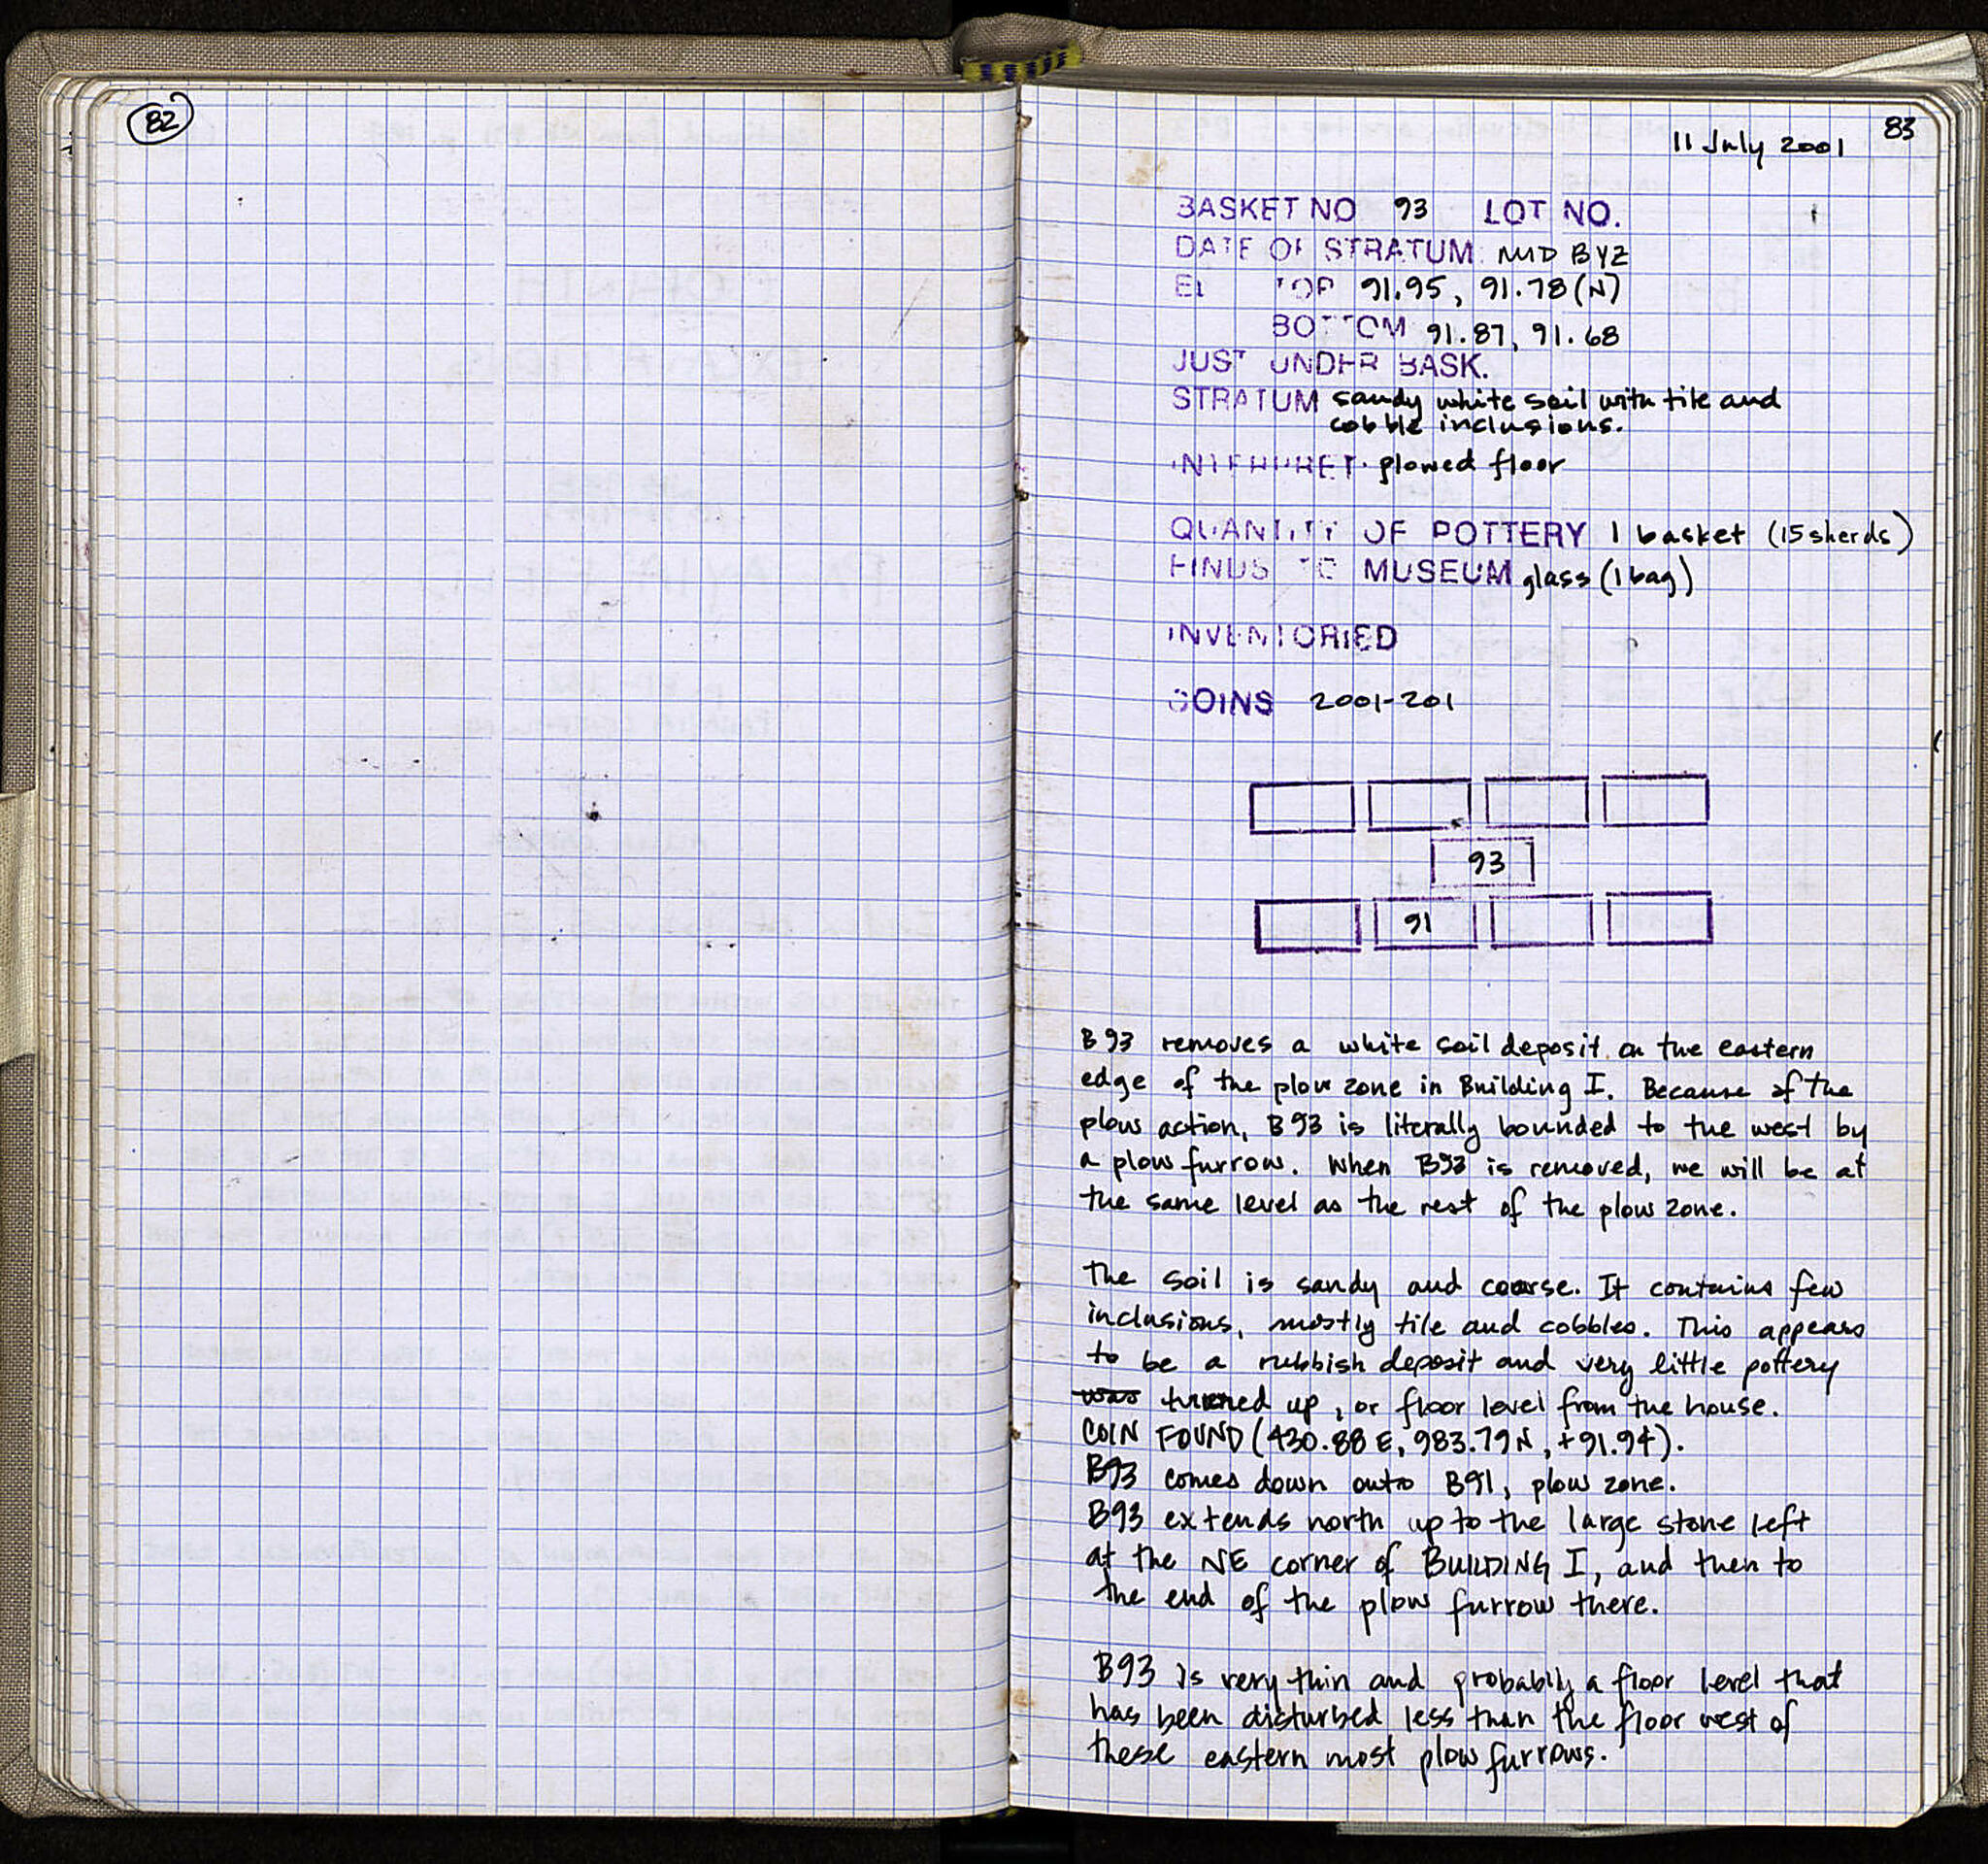 82
83
11 July 2001
BASKET NO 93 LOT NO.
DATE OF STRATUM: MID BYZ
EL TOP 91.95, 91.78 (N)
BOTTOM 91.87, 91.68
JUST UNDER BASK.
STRATUM sandy white soil with tile and
cobble inclusions.
INTERPRET. plowed floor
QUANTITY OF POTTERY 1 basket (15 sherds)
FINDS TO MUSEUM glass (1 bag)
INVENTORIED
COINS 2001-201
93
91
B93 removes a white soil deposit on the eastern
edge of the plow zone in Building I. Because of the
plow action, B93 is literally bounded to the west by
a plow furrow. When B93 is removed, we will be at
the same level as the rest of the plow zone.
The soil is sandy and coarse. It contains few
inclusions, mostly tile and cobbles. This appears
to be a rubbish deposit and very little pottery
was turned up, or floor level from the house.
COIN FOUND (430.88 E, 983.79 N, +91.94).
B93 comes down onto B91, plow zone.
B93 extends north up to the large stone left
at the NE corner of BUILDING I, and then to
the end of the plow furrow there.
B93 is very thin and probably a floor level that
has been disturbed less than the floor west of
these eastern most plow furrows.